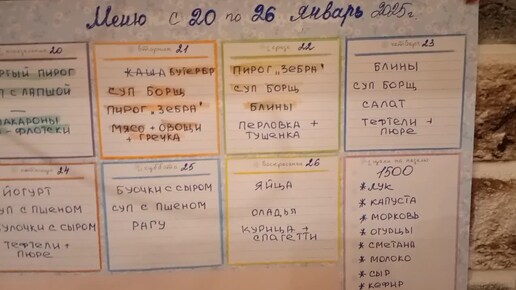 Меню с 20 по 26 Январь 2025г
понедельник 20
ртый пирог
п с лапшой
—
макароны
- флотски
вторник 21
каша бутербр
суп борщ
пирог „зебра"
мясо + овощи
+ гречка
среда 22
пирог „зебра"
суп борщ
блины
перловка +
тушенка
четверг 23
блины
суп борщ
салат
тефтели +
пюре
пятница 24
йогурт
уп с пшеном
улочки с сыром
тефтели +
пюре
суббота 25
буочки с сыром
суп с пшеном
рагу
воскресенье 26
яйца
оладья
курица +
спагетти
1500
* лук
* капуста
* морковь
* огурцы
* сметана
* молоко
* сыр
* кефир